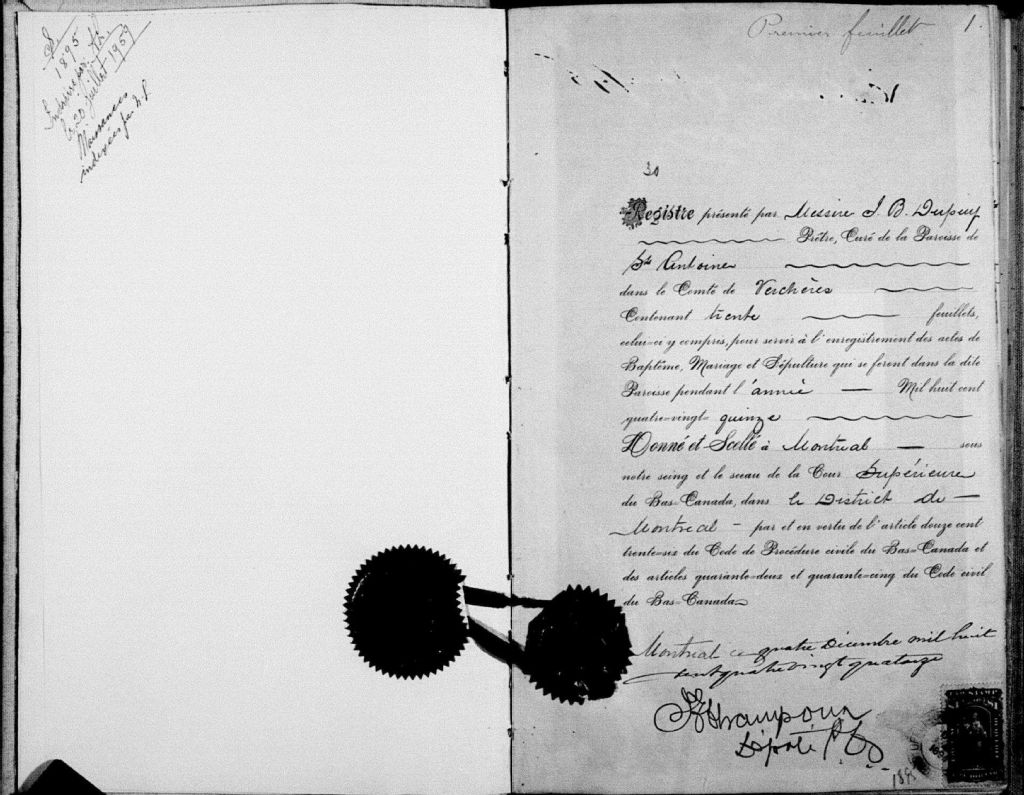 1895
le 20 juillet 1959
Naissances
indexées par
Premier feuillet
1.
30
Registre présenté par Messire J. B. Dupuy
Prêtre, Curé de la Paroisse de
St Antoine
dans le Comté de Verchères
Contenant trente feuillets,
celui-ci y compris, pour servir à l'enregistrement des actes de
Baptême, Mariage et Sépulture qui se feront dans la dite
Paroisse pendant l'année Mil huit cent
quatre-vingt- quinze
Donné et Scellé à Montréal sous
notre seing et le sceau de la Cour Supérieure
du Bas-Canada, dans le District de
Montreal par et en vertu de l'article douze cent
trente-six du Code de Procédure civile du Bas-Canada et
des articles quarante-deux et quarante-cinq du Code civil
du Bas-Canada
Montreal ce quatre Décembre mil huit
cent quatre vingt quatorze
Député P.